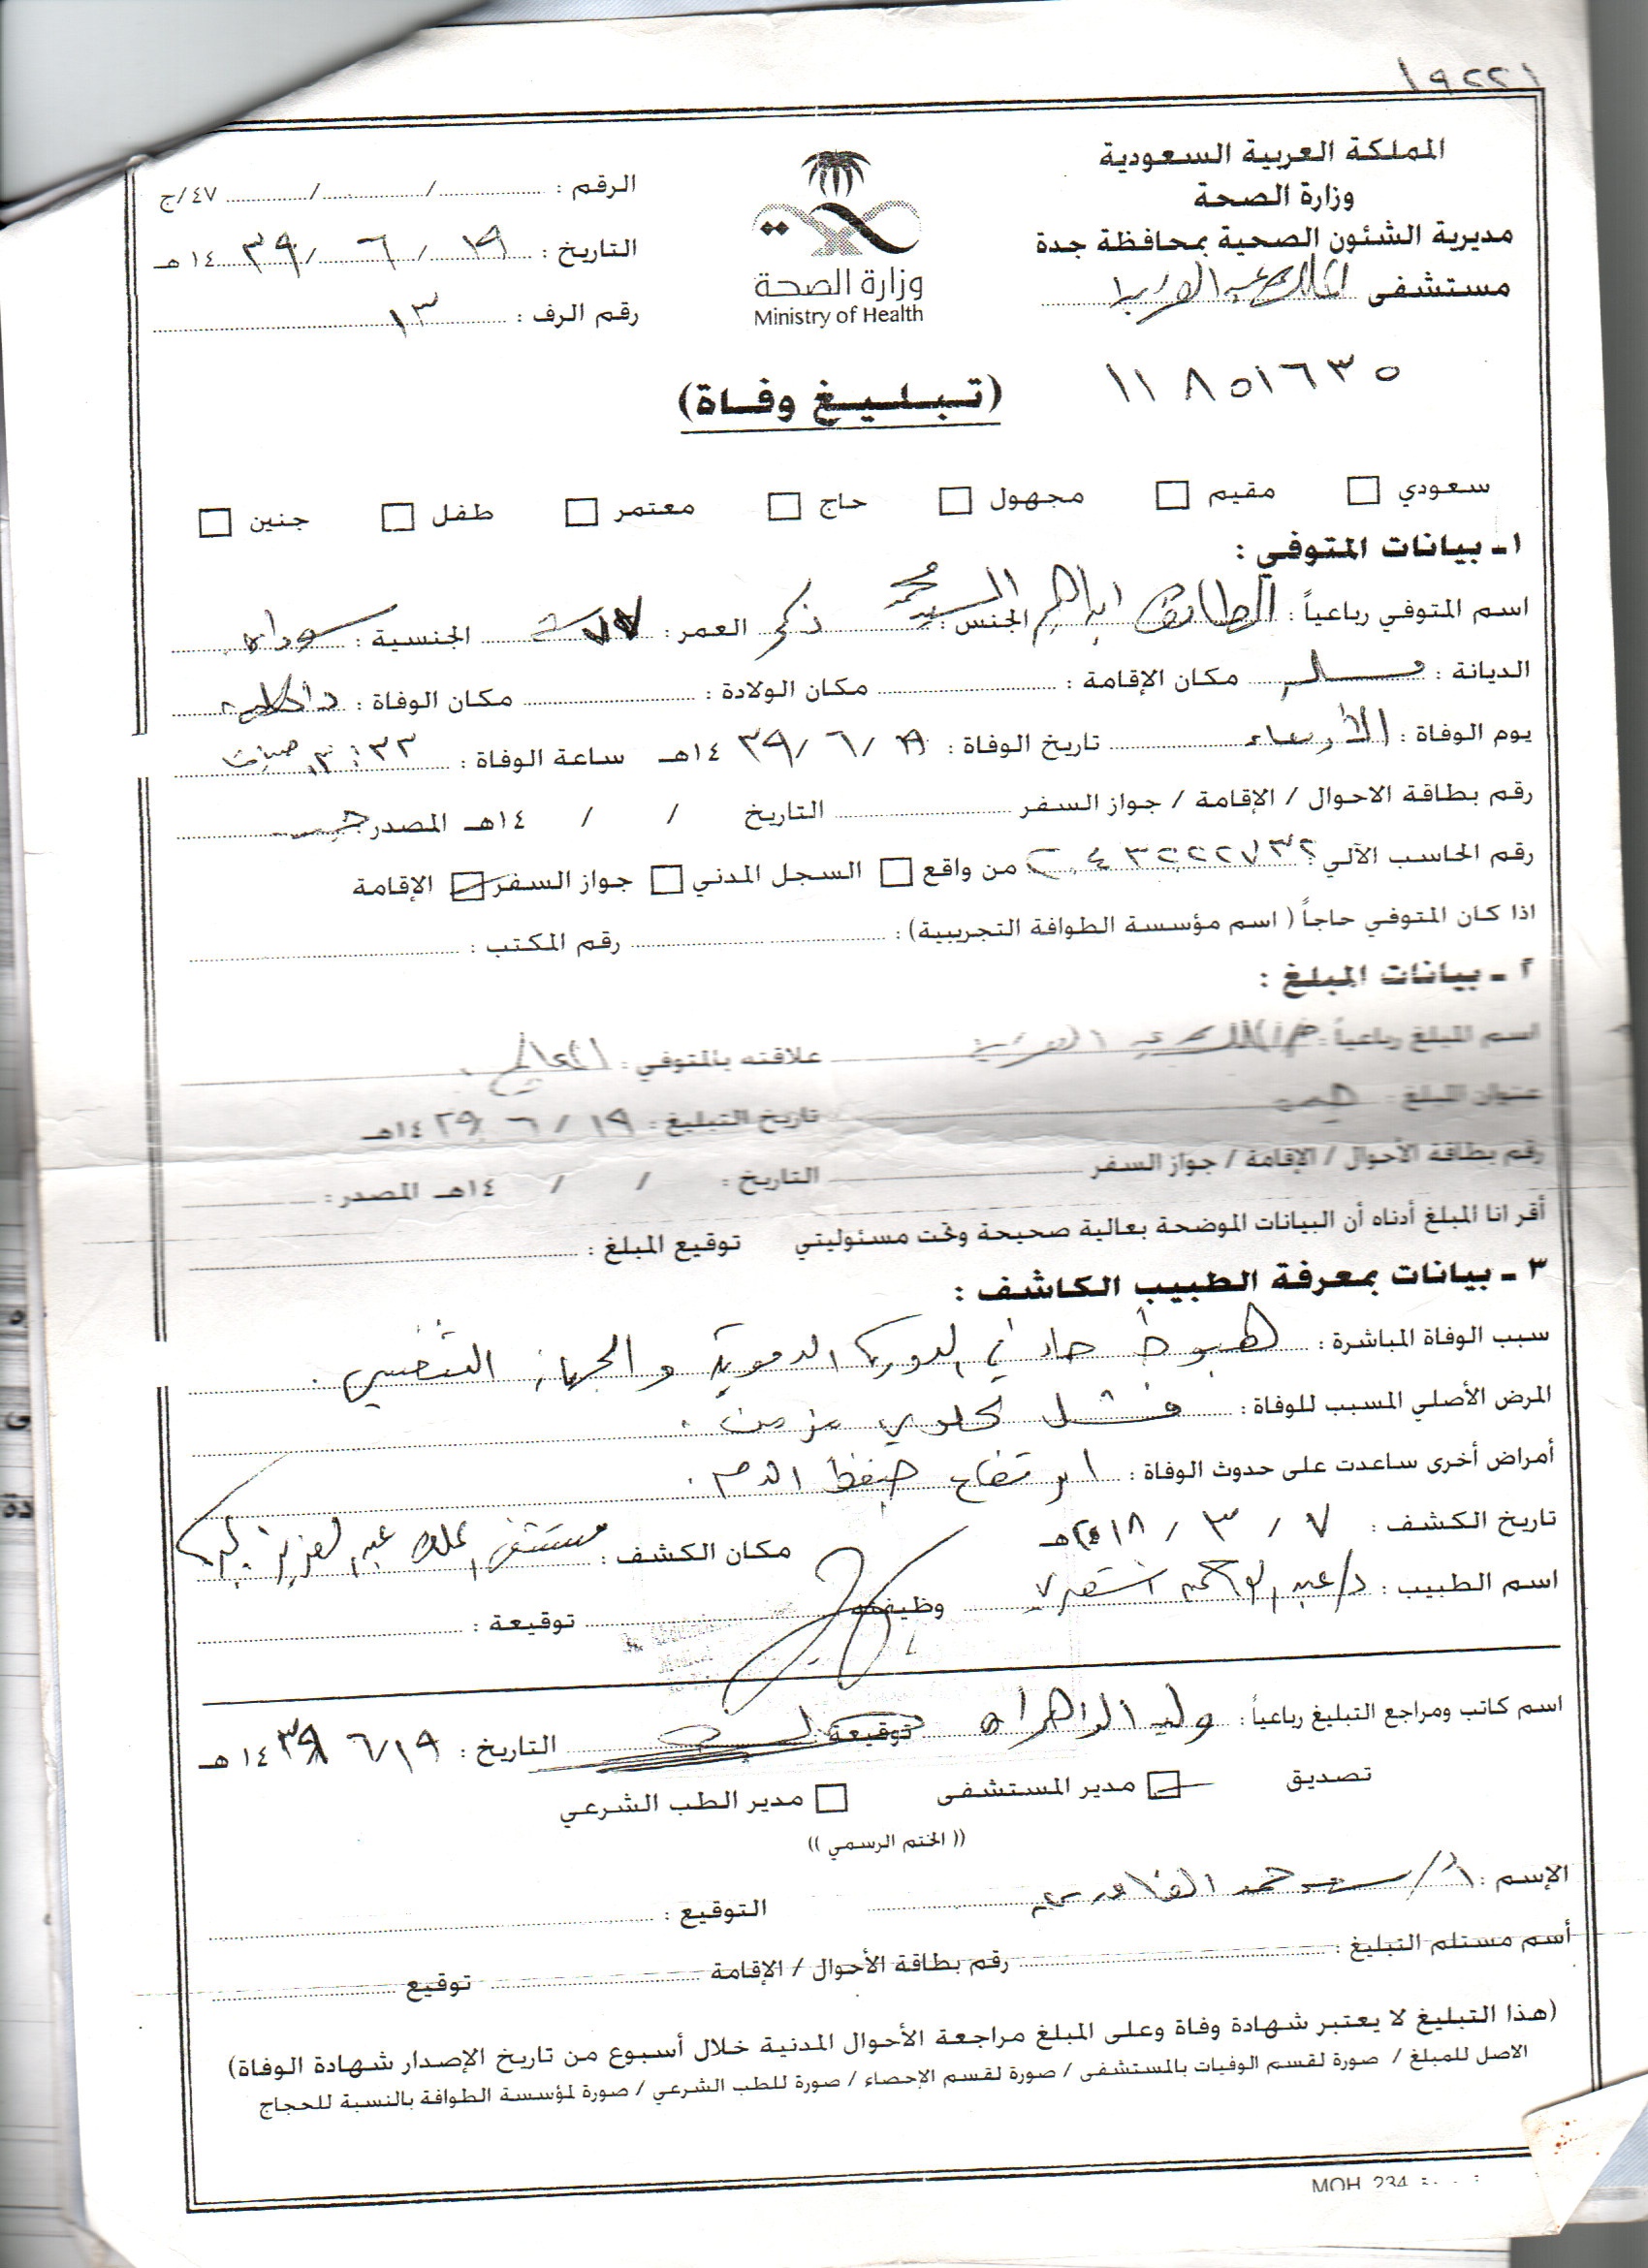 ١٩٢٢١
المملكة العربية السعودية
وزارة الصحة
مديرية الشئون الصحية بمحافظة جدة
مستشفى الملك عبد العزيز
وزارة الصحة
Ministry of Health
الرقم : / / / ٤٧/ج
التاريخ : ١٩ / ٦ / ١٤٣٩ هـ
رقم الرف : ١٣
١١٨٥١٦٣٥
(تبليغ وفاة)
سعودي □ مقيم □ مجهول □ حاج □ معتمر □ طفل □ جنين □
١ - بيانات المتوفي :
اسم المتوفي رباعياً : ابراهيم السيد محمد الجنس : ذكر العمر : الجنسية :
الديانة : مسلم مكان الإقامة : مكان الولادة : مكان الوفاة :
يوم الوفاة : الأربعاء تاريخ الوفاة : ١٩ / ٦ / ١٤٣٩هـ ساعة الوفاة :
رقم بطاقة الاحوال / الإقامة / جواز السفر التاريخ / / ١٤هـ المصدر
رقم الحاسب الآلي : من واقع □ السجل المدني □ جواز السفر ☑ الإقامة
اذا كان المتوفي حاجاً ( اسم مؤسسة الطوافة التجريبية) : رقم المكتب :
٢ - بيانات المبلغ :
اسم المبلغ رباعياً : الملك عبد العزيز علاقته بالمتوفي :
عنوان المبلغ : تاريخ التبليغ : ١٩ / ٦ / ١٤٣٩هـ
رقم بطاقة الأحوال / الإقامة / جواز السفر التاريخ : / / ١٤هـ المصدر :
أقر انا المبلغ أدناه أن البيانات الموضحة بعالية صحيحة وتحت مسئوليتي توقيع المبلغ :
٣ - بيانات بمعرفة الطبيب الكاشف :
سبب الوفاة المباشرة : هبوط حاد في الدورة الدموية والجهاز التنفسي .
المرض الأصلي المسبب للوفاة : فشل كلوي مزمن .
أمراض أخرى ساعدت على حدوث الوفاة : ارتفاع ضغط الدم .
تاريخ الكشف : ٧ / ٣ / ٢٠١٨ هـ مكان الكشف : مستشفى الملك عبد العزيز
اسم الطبيب : د/عبد وظيفته توقيعة :
اسم كاتب ومراجع التبليغ رباعياً : وليد الزاهراني توقيعة التاريخ : ١٩/٦ ١٤٣٩ هـ
تصديق ☑ مدير المستشفى □ مدير الطب الشرعي
(( الختم الرسمي ))
الإسم : التوقيع :
أسم مستلم التبليغ : رقم بطاقة الأحوال / الإقامة توقيع
(هذا التبليغ لا يعتبر شهادة وفاة وعلى المبلغ مراجعة الأحوال المدنية خلال أسبوع من تاريخ الإصدار شهادة الوفاة)
الاصل للمبلغ / صورة لقسم الوفيات بالمستشفى / صورة لقسم الإحصاء / صورة للطب الشرعي / صورة لمؤسسة الطوافة بالنسبة للحجاج
MOH 234